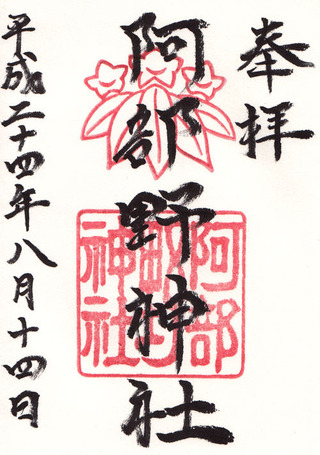 奉拝
阿部野神社
阿部野神社
平成二十四年八月十四日